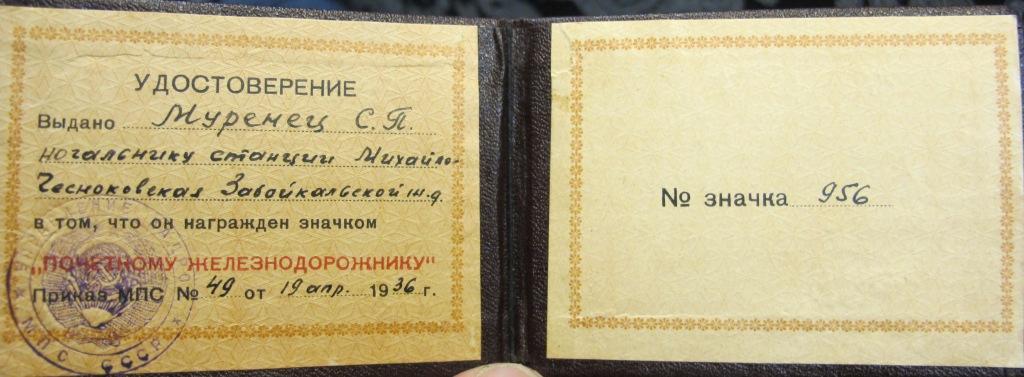 УДОСТОВЕРЕНИЕ
Выдано Муренец С.П.
начальнику станции Михайло-
Чесноковская Забайкальской ж.д.
в том, что он награжден значком
„ПОЧЕТНОМУ ЖЕЛЕЗНОДОРОЖНИКУ"
Приказ МПС № 49 от 19 апр. 1936 г.
МПС СССР
№ значка 956